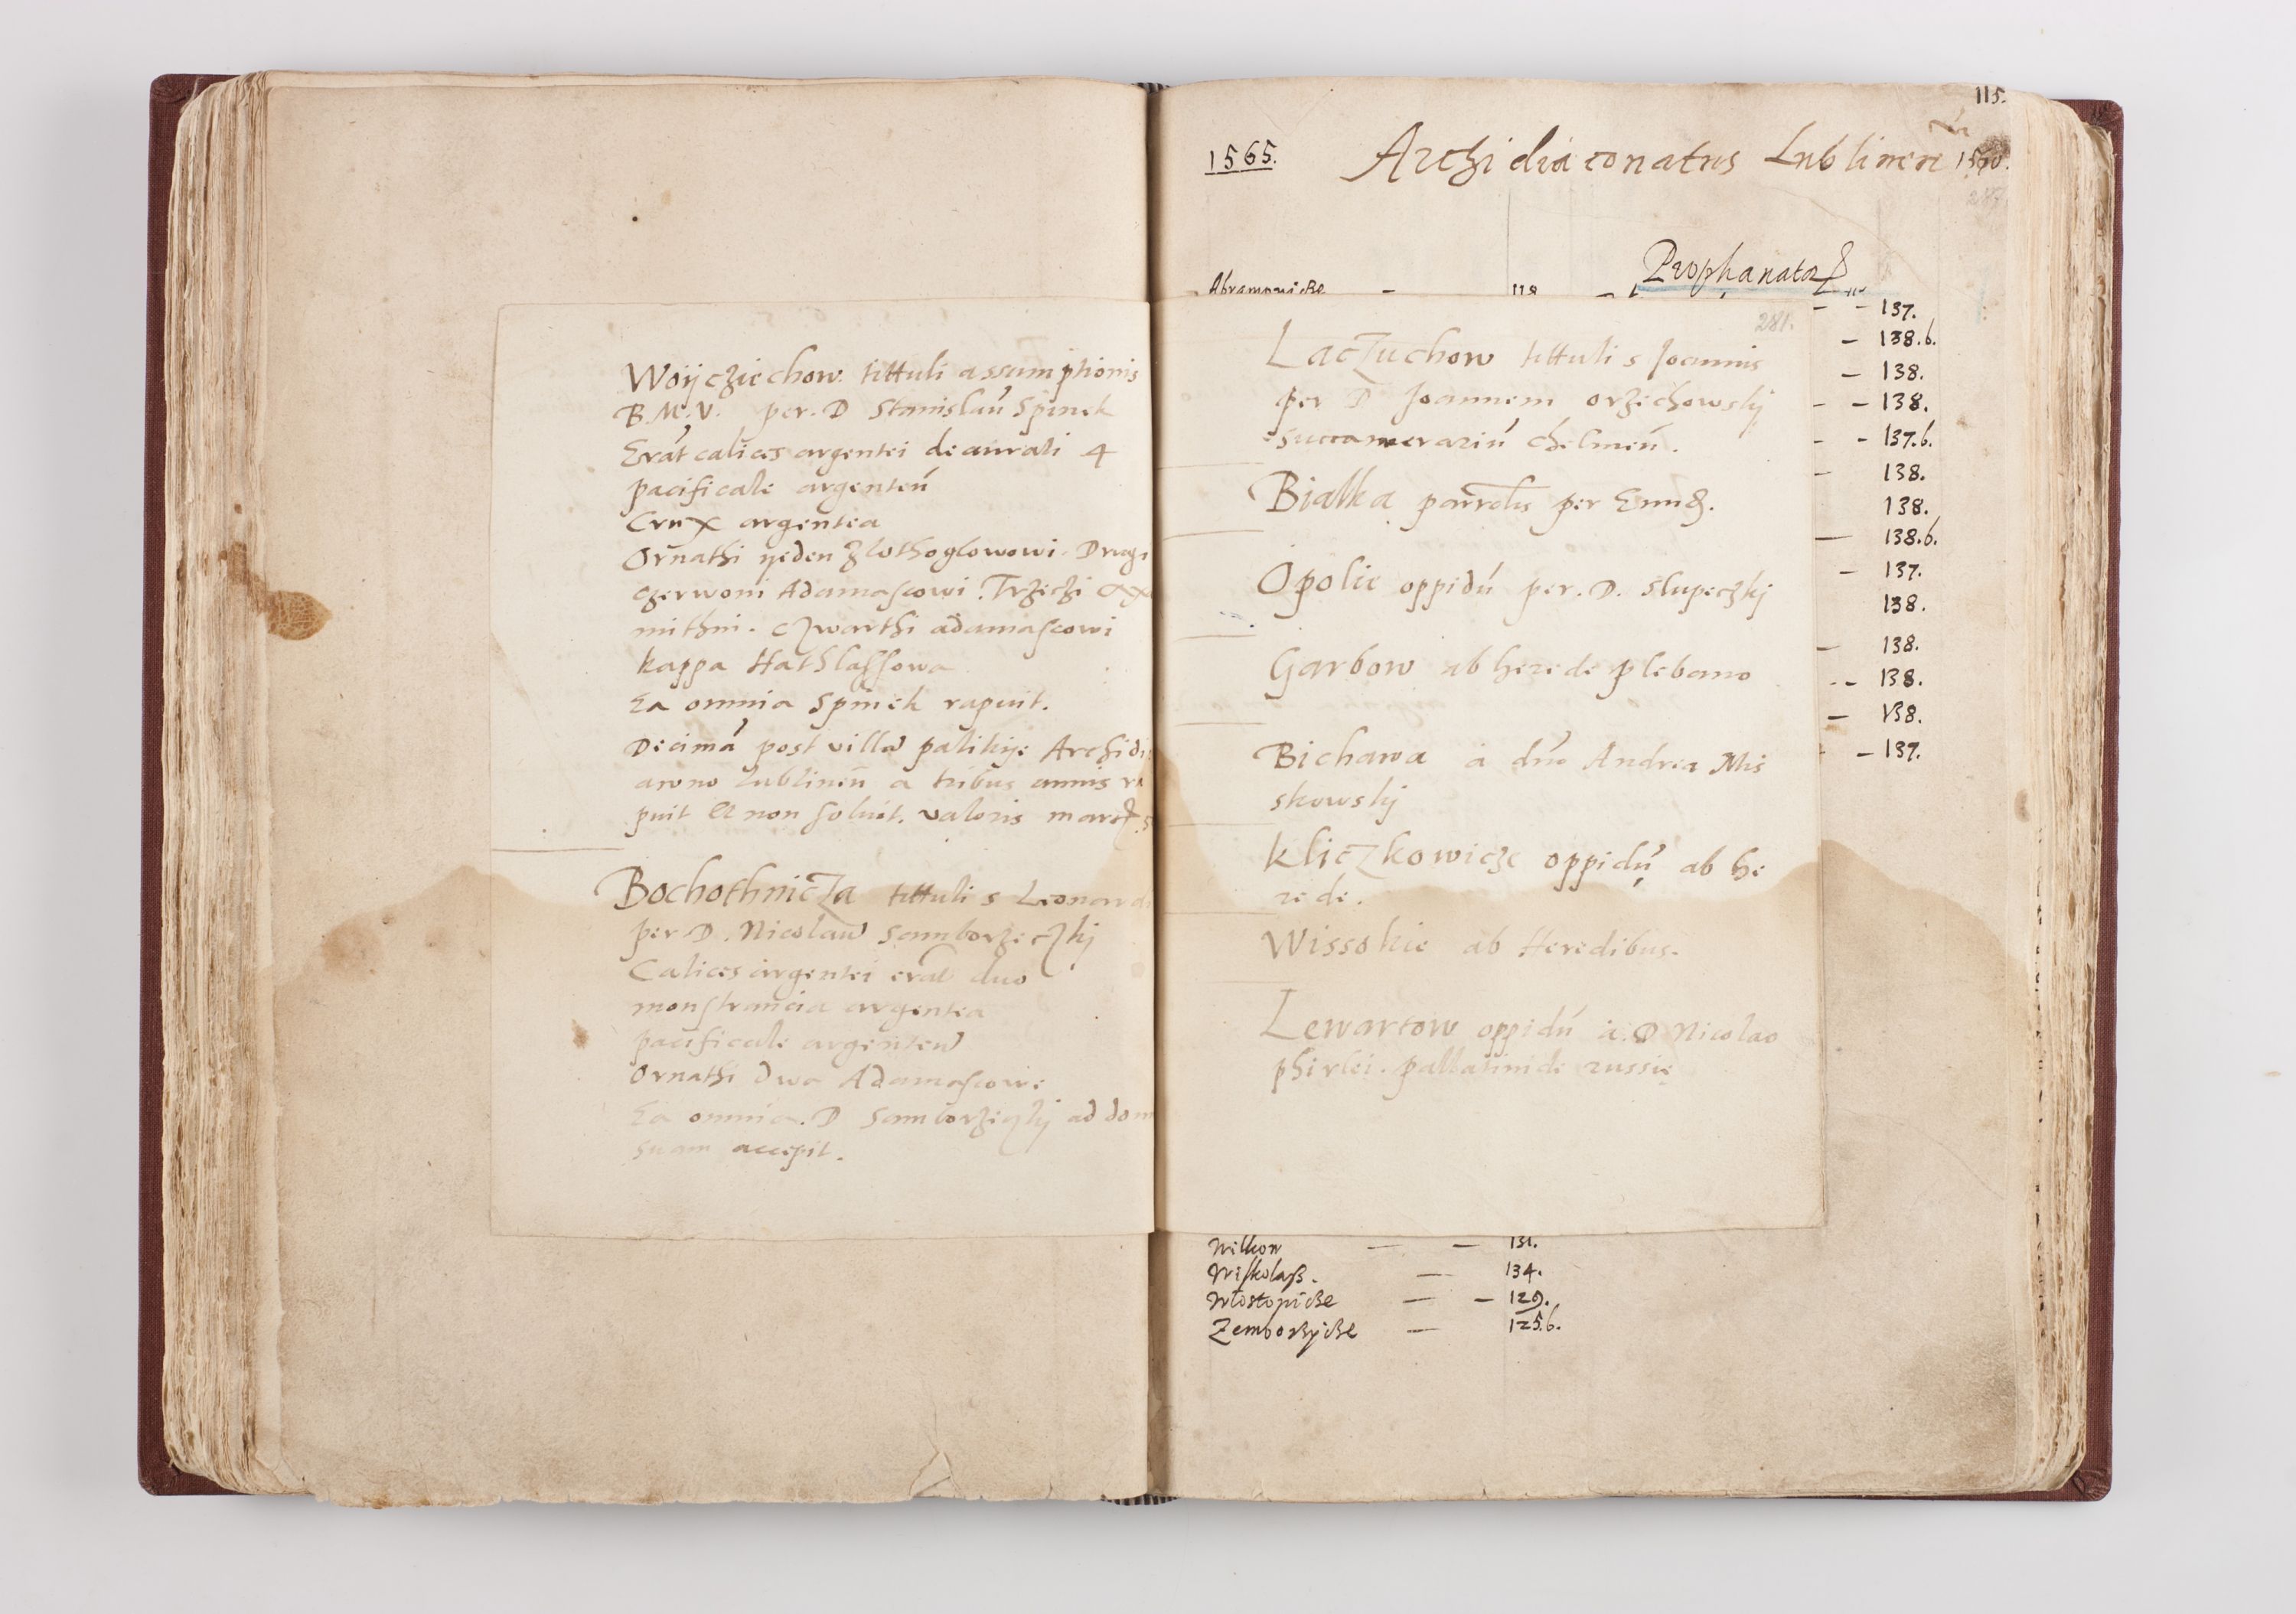 Woÿcziechow tittuli assumptionis
B.M.V. per. D Stanislaū Spinek
Erāt calices argentei deaurati 4
pacificale argenteū
Crux argentea
Ornathi yeden zlothoglowowi. Drugi
czerwoni Adamascowi. Trzeczi ax
mithni. czwarthi adamascowi
kappa Hathlassowa
Ea omnia Spinek rapuit.
Decimā post villā palikije Archidi
acono lublineñ a tribus annis ra
puit et non soluit. valoris marc.
Bochothnicza tittuli s Leonardi
per D. Nicolaū Samborzeczkj
Calices argentei erāt duo
monstrancia argentea
pacificale argenteū
Ornathi dwa Adamascowe
Ea omnia. D Samborzieczkj ad dom
suam accepit.
115.
1565. Archidiaconatus Lublineñ
Prophanatorum
Abramowicze - 118
281.
Laczuchow tittuli s Joannis
per D Joannem orzechowskj
succamerariū chelmeñ.
Bialka per
Opolie oppidū per. D. Slupeczkj
Garbow ab herede plebano
Bichawa a dño Andrea Mis
skowskj
Kliczkowicze oppidū ab he
rede.
Wissokie ab Heredibus.
Lewartow oppidū a. D Nicolao
phirlei. pallatini de russie
- - 137.
- 138.b.
- 138.
- - 138.
- - 137.b.
- 138.
138.
- 138.b.
- 137.
138.
- 138.
- - 138.
- 138.
- 137.
Wilkow - - 131.
Wiskolasz. - 134.
Wlostopicze - - 129.
Zemborzycze - 125.b.